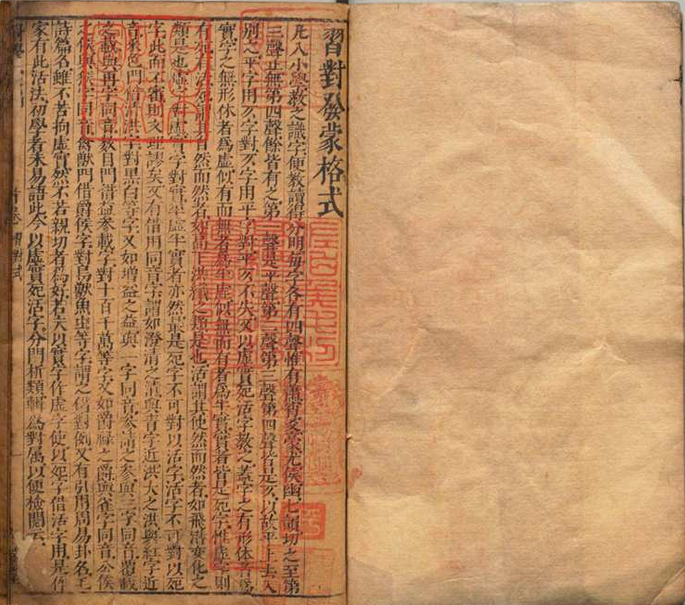 習對發蒙格式
凡入小學教之識字便教讀得分明每字各有四聲惟有蕭肴爻豪尤侯幽七韻切之至第
三聲並無第四聲餘皆有之第一聲是平聲第二聲第三聲第四聲皆是仄以故平上去入
別之平字用仄字對仄字用平字對平仄不失又以虛實死活字教之蓋字之有形体者爲
實字之無形体者爲虛似有而無者爲半虛似無而有者爲半實實者皆是死字惟虛字則
有死有活死謂其自然而然者如高下洪纖之類是也活謂其使然而然者如飛潛變化之
類是也虛字對虛字對實半虛半實者亦然最是死字不可對以活字活字不可對以死
字此而不審則文理謬矣又有借用同音字謂如澄清之清與青字近洪大之洪與紅字近
音綵色門借清洪字對黑白等字又如增益之益與一字同音參請之參與三字同音覆載
之載與再字同音數目門借益參載字對十百千萬等字又如爵祿之爵與雀字同音公侯
之侯與猴字同音禽獸門借爵侯字對鳥獸魚虫等字謂之借對例又有引用周易卦名毛
詩篇名雖不若拘虛實然不若親切者爲好若夫以實字作虛字使以死字借活字用是作
家有此活法初學者未易語此今以虛實死活字分門析類輯爲對屬以便檢閱云